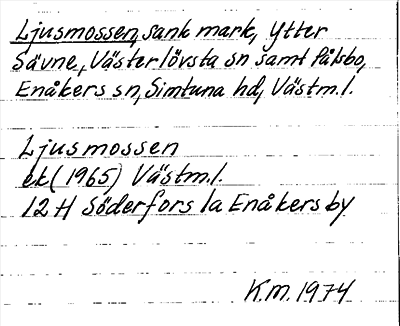 Ljusmossen, sank mark, Ytter
Sävne, Västerlövsta sn samt Pålsbo,
Enåkers sn, Simtuna hd, Västm.l.
Ljusmossen
ek (1965) Västm.l.
12 H Söderfors 1a Enåkersby
K.M. 1974